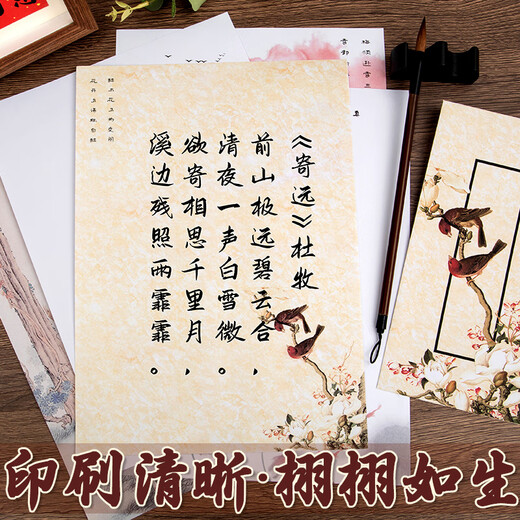 《寄远》杜牧
前山极远碧云合，
清夜一声白雪微。
欲寄相思千里月，
溪边残照雨霏霏。
印刷清晰·栩栩如生